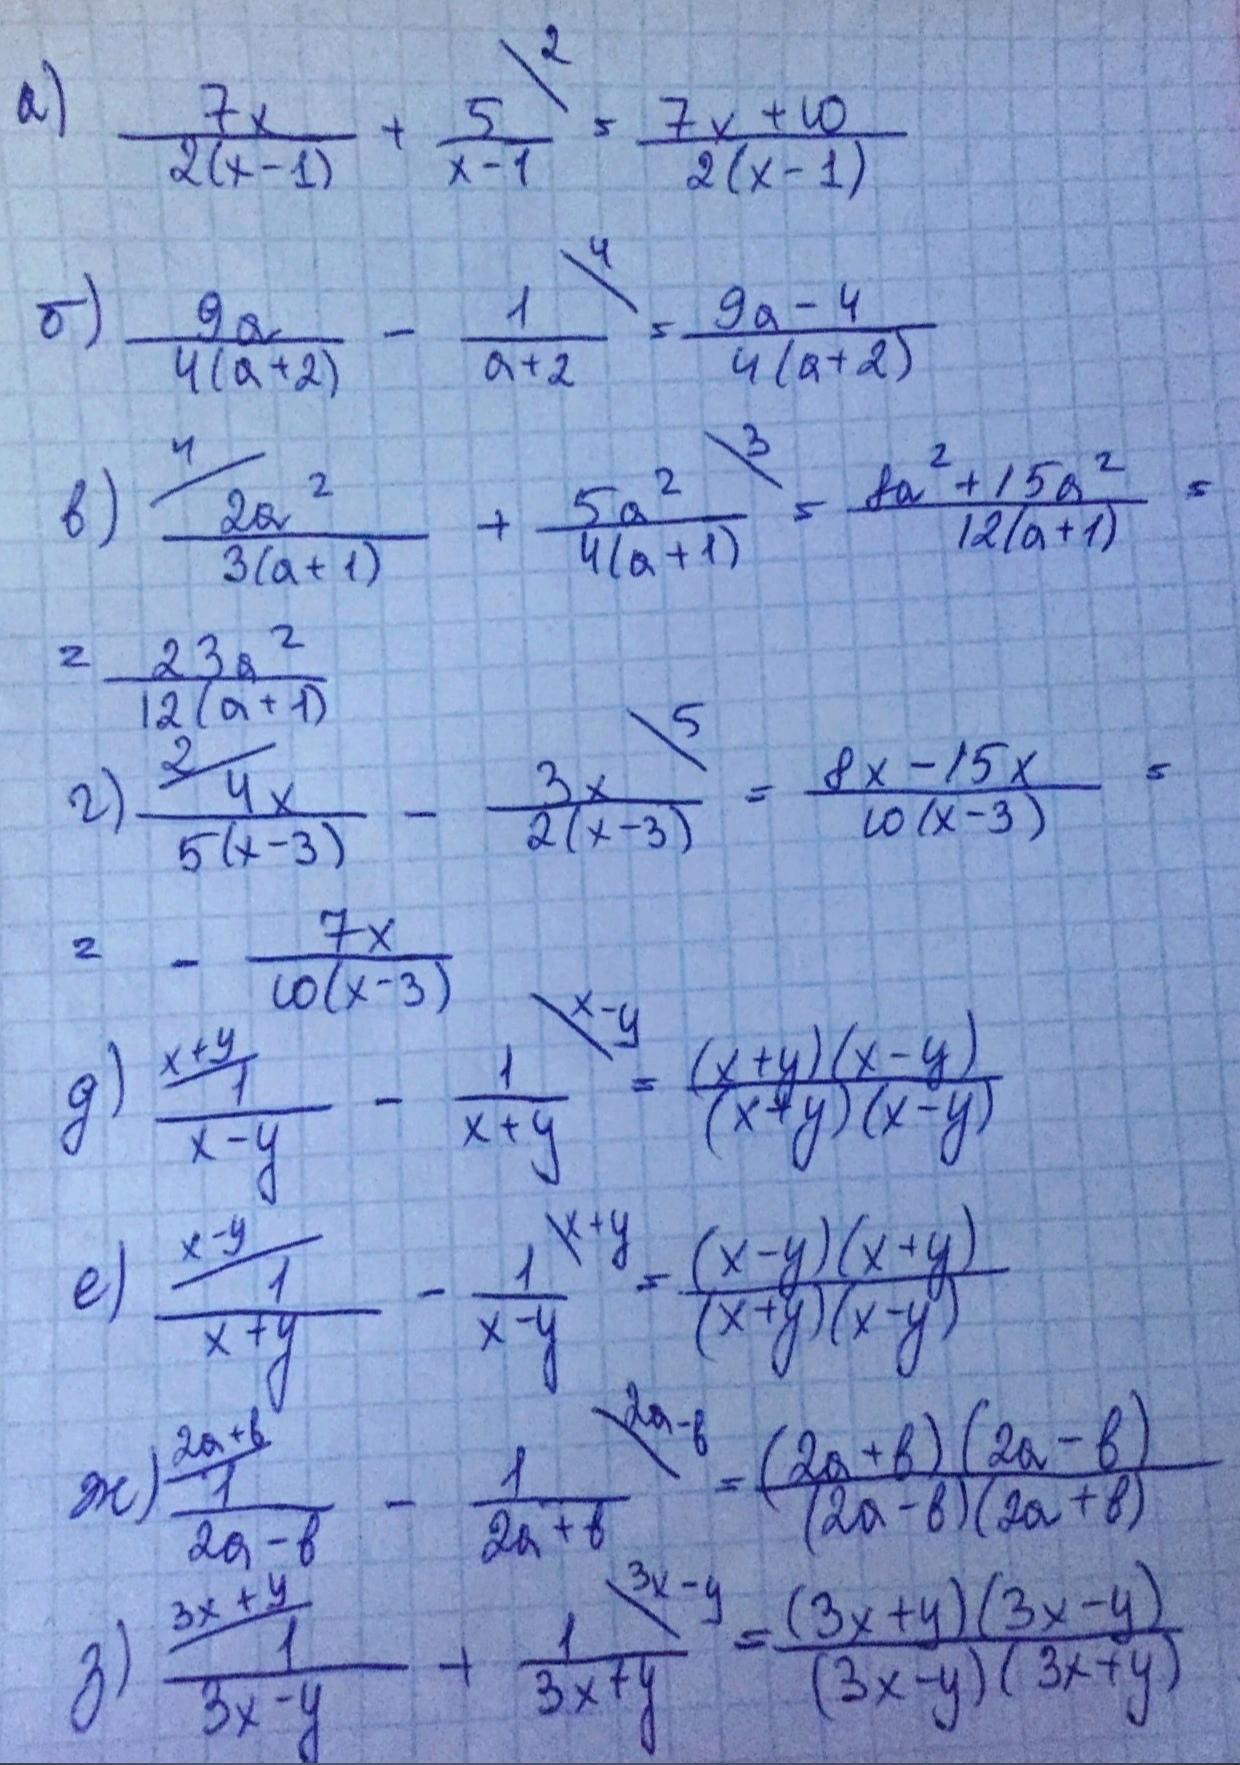 а) 7x/2(x-1) + 5/x-1 \2 = 7x+10/2(x-1)
б) 9a/4(a+2) - 1/a+2 \4 = 9a-4/4(a+2)
в) 4/ 2a²/3(a+1) + 5a²/4(a+1) \3 = 8a²+15a²/12(a+1) =
= 23a²/12(a+1)
г) 2/ 4x/5(x-3) - 3x/2(x-3) \5 = 8x-15x/10(x-3) =
= - 7x/10(x-3)
д) x+y/ 1/x-y - 1/x+y \x-y = (x+y)(x-y)/(x+y)(x-y)
е) x-y/ 1/x+y - 1/x-y \x+y = (x-y)(x+y)/(x+y)(x-y)
ж) 2a+в/ 1/2a-в - 1/2a+в \2a-в = (2a+в)(2a-в)/(2a-в)(2a+в)
з) 3x+y/ 1/3x-y + 1/3x+y \3x-y = (3x+y)(3x-y)/(3x-y)(3x+y)